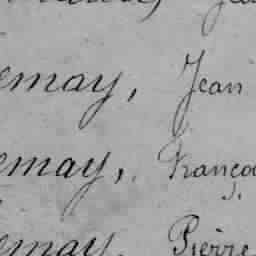 emay, Jean
emay, França
emay, Pierre